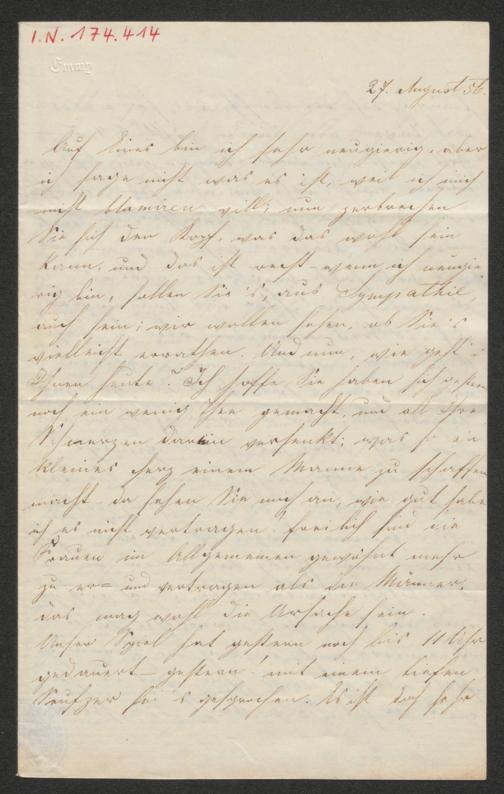 I.N. 174.414
Emmy
27. August 56.
Auf Eines bin ich sehr neugierig, aber
ich sage nicht was es ist, weil ich mich
nicht blamiren will; nun zerbrechen
Sie sich den Kopf, was das wohl sein
kann, und das ist recht – wenn ich neugie
rig bin, sollen Sie's, aus Sympathie,
auch sein; wir wollen sehen, ob Sie's
vielleicht errathen. Und nun, wie geht's
Ihnen heute? Ich hoffe Sie haben sich gestern
noch ein wenig Thee gemacht, und all Ihre
Schmerzen darin versenkt; was so ein
kleines Herz einem Manne zu schaffen
macht – da sehen Sie mich an, wie gut habe
ich es nicht vertragen! freilich sind die
Frauen im Allgemeinen gewöhnt mehr
zu er= und vertragen als die Männer,
das mag wohl die Ursache sein.
Unser Spiel hat gestern noch bis 11 Uhr
gedauert – gestern! mit einem tiefen
Seufzer sei's gesprochen. Es ist doch sehr